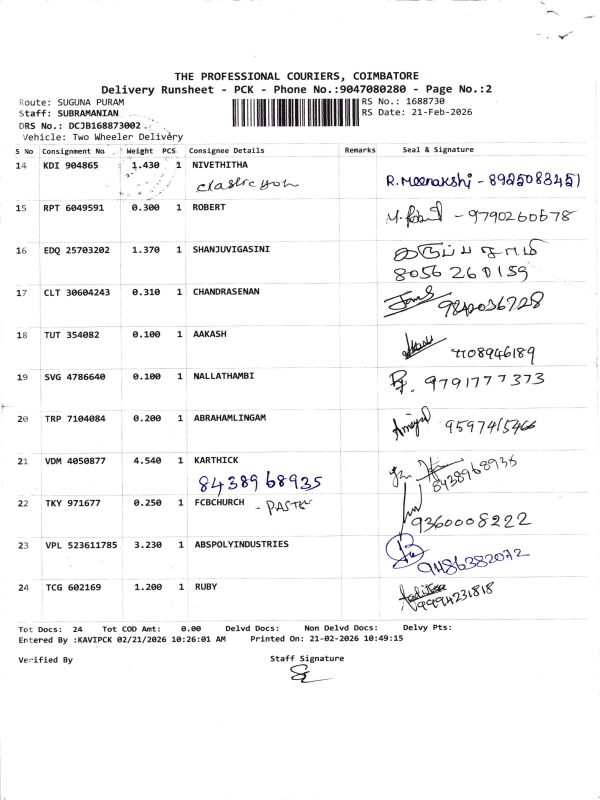 THE PROFESSIONAL COURIERS, COIMBATORE
Delivery Runsheet - PCK - Phone No.:9047080280 - Page No.:2
Route: SUGUNA PURAM RS No.: 1688730
Staff: SUBRAMANIAN RS Date: 21-Feb-2026
DRS No.: DCJB168873002
Vehicle: Two Wheeler Delivery
S No Consignment No Weight PCS Consignee Details Remarks Seal & Signature
14 KDI 904865 1.430 1 NIVETHITHA
R.Meenakshi - 8925083451
15 RPT 6049591 0.300 1 ROBERT
- 9790260678
16 EDQ 25703202 1.370 1 SHANJUVIGASINI கருப்பசாமி
8056 260159
17 CLT 30604243 0.310 1 CHANDRASENAN
9842036728
18 TUT 354082 0.100 1 AAKASH
7708946189
19 SVG 4786640 0.100 1 NALLATHAMBI
9791777373
20 TRP 7104084 0.200 1 ABRAHAMLINGAM
9597415466
21 VDM 4050877 4.540 1 KARTHICK
8438968935 8438968935
22 TKY 971677 0.250 1 FCBCHURCH - PASTER
9360008222
23 VPL 523611785 3.230 1 ABSPOLYINDUSTRIES
9486382072
24 TCG 602169 1.200 1 RUBY
9994231818
Tot Docs: 24 Tot COD Amt: 0.00 Delvd Docs: Non Delvd Docs: Delvy Pts:
Entered By :KAVIPCK 02/21/2026 10:26:01 AM Printed On: 21-02-2026 10:49:15
Verified By Staff Signature